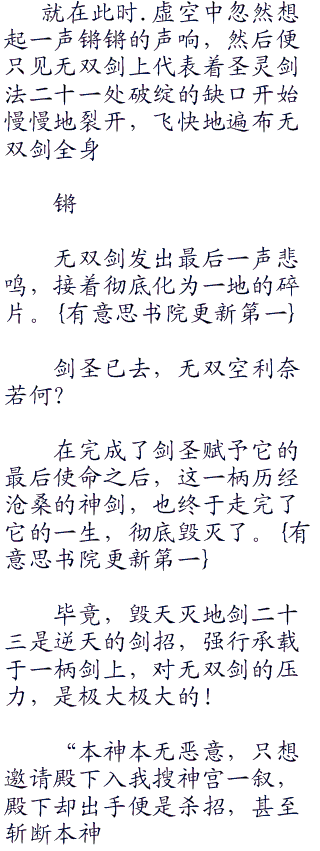 就在此时.虚空中忽然想
起一声锵锵的声响，然后便
只见无双剑上代表着圣灵剑
法二十一处破绽的缺口开始
慢慢地裂开，飞快地遍布无
双剑全身
锵
无双剑发出最后一声悲
鸣，接着彻底化为一地的碎
片。{有意思书院更新第一}
剑圣已去，无双空利奈
若何？
在完成了剑圣赋予它的
最后使命之后，这一柄历经
沧桑的神剑，也终于走完了
它的一生，彻底毁灭了。{有
意思书院更新第一}
毕竟，毁天灭地剑二十
三是逆天的剑招，强行承载
于一柄剑上，对无双剑的压
力，是极大极大的！
“本神本无恶意，只想
邀请殿下入我搜神宫一叙，
殿下却出手便是杀招，甚至
斩断本神